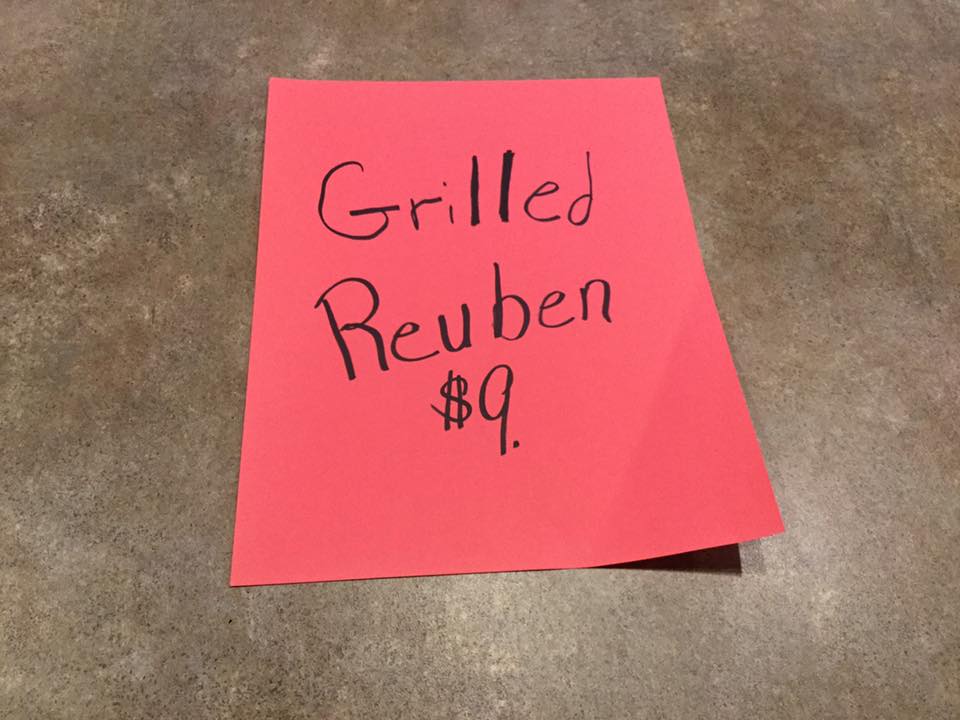 Grilled
Reuben
$9.